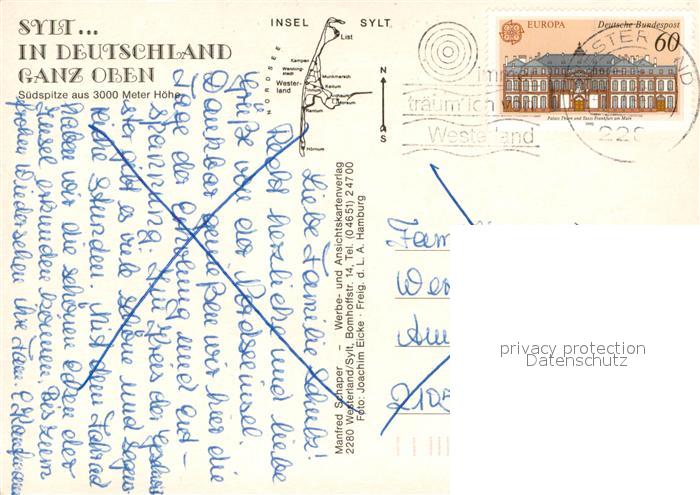 SYLT ...
IN DEUTSCHLAND
GANZ OBEN
Südspitze aus 3000 Meter Höhe
INSEL SYLT
List
NORDSEE
Kampen
Wenning-
stedt
Munkmarsch
Wester-
land
Keitum
Morsum
Rantum
Hörnum
N
S
EUROPA
Deutsche Bundespost
60
Palais Thurn und Taxis Frankfurt am Main
träum' ich
Westerland
Liebe Familie
Recht herzliche und liebe
Grüße von der Nordseeinsel.
Dankbar genießen wir hier die
Tage der Erholung und Ent-
spannung. Im Kreis der
gibt es viele schöne und
Stunden. Mit dem Fahrrad
haben wir die schönen der
Insel erkunden können. Bis zum
frohen Wiedersehen Ihre Fam.
Manfred Schaper – Werbe- und Ansichtskartenverlag
2280 Westerland/Sylt, Bomhoffstr. 14, Tel. (0 46 51) 2 47 00
Foto: Joachim Eicke · Freig. d. L. A. Hamburg
Fam
Wer
Am
2105
privacy protection
Datenschutz